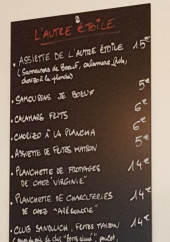 L'AUTRE ÉTOILE
• ASSIETTE DE L'AUTRE ÉTOILE 15€
(Samoussas de Bœuf, calamars, frites,
à la plancha)
• SAMOUSSAS DE BOEUF 5€
• CALAMARS FRITS 6€
• CHORIZO À LA PLANCHA 6€
• ASSIETTE DE FRITES MAISON 5€
• PLANCHETTE DE FROMAGES 14€
DE CHEZ "VIRGINIE"
• PLANCHETTE DE CHARCUTERIES 14€
DE CHEZ
• CLUB SANDWICH, FRITES MAISON 14€